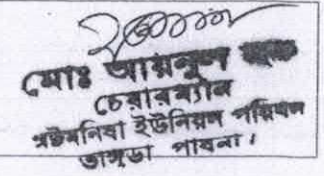 মোঃ আয়নুল হক
চেয়ারম্যান
অষ্টমনিষা ইউনিয়ন পরিষদ
ভাঙ্গুড়া পাবনা।